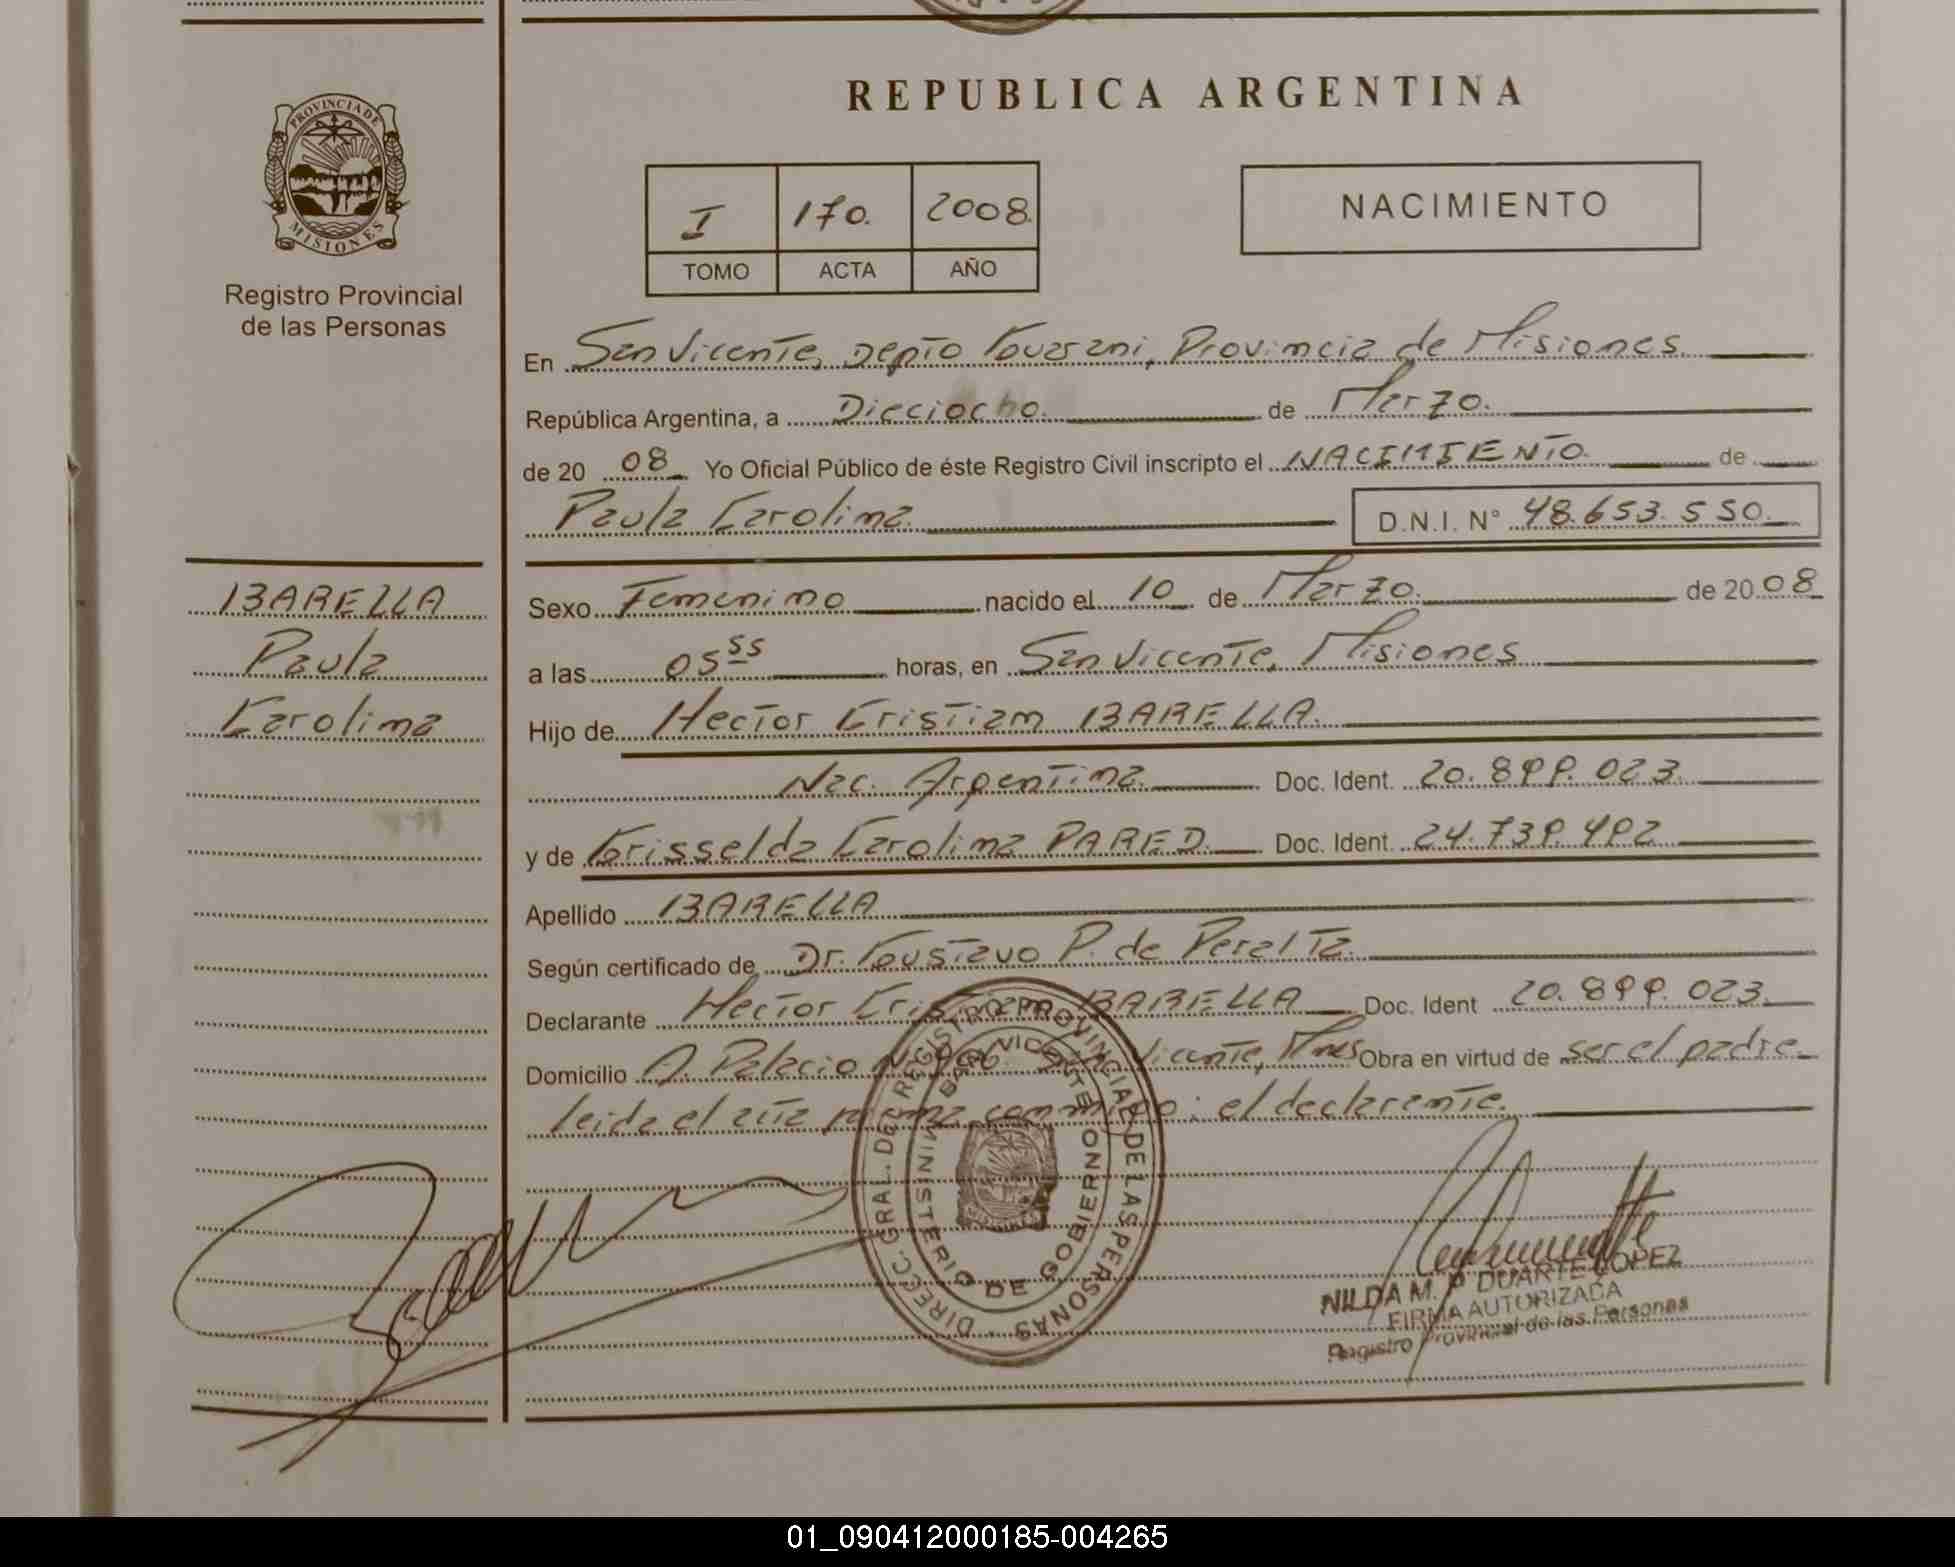 PROVINCIA DE
MISIONES
Registro Provincial
de las Personas
REPUBLICA ARGENTINA
I 170. 2008.
TOMO ACTA AÑO
NACIMIENTO
En San Vicente, Depto Guarani, Provincia de Misiones
República Argentina, a Dieciocho. de Marzo.
de 20 08 Yo Oficial Público de éste Registro Civil inscripto el NACIMIENTO de
Paula Carolina D.N.I. N° 48.653.550.
BARELLA
Paula
Carolina
Sexo Femenino nacido el 10 de Marzo. de 20 08
a las 05 55 horas, en San Vicente, Misiones
Hijo de Hector Cristian BARELLA.
Nac. Argentina. Doc. Ident. 20.899.023
y de Grisselda Carolina PARED. Doc. Ident. 24.739.492
Apellido BARELLA
Según certificado de Dr. Gustavo P. de Peralta.
Declarante Hector Cristian BARELLA Doc. Ident 20.899.023
Domicilio A. Palacio San Vicente, Mnes Obra en virtud de ser el padre
leida el acta firma conmigo: el declarante.
DIRECC. GRAL. DE REGISTRO PROVINCIAL DE LAS PERSONAS
MINISTERIO DE GOBIERNO
SAN VICENTE
NILDA M. DUARTE LOPEZ
FIRMA AUTORIZADA
Registro Provincial de las Personas
01_090412000185-004265